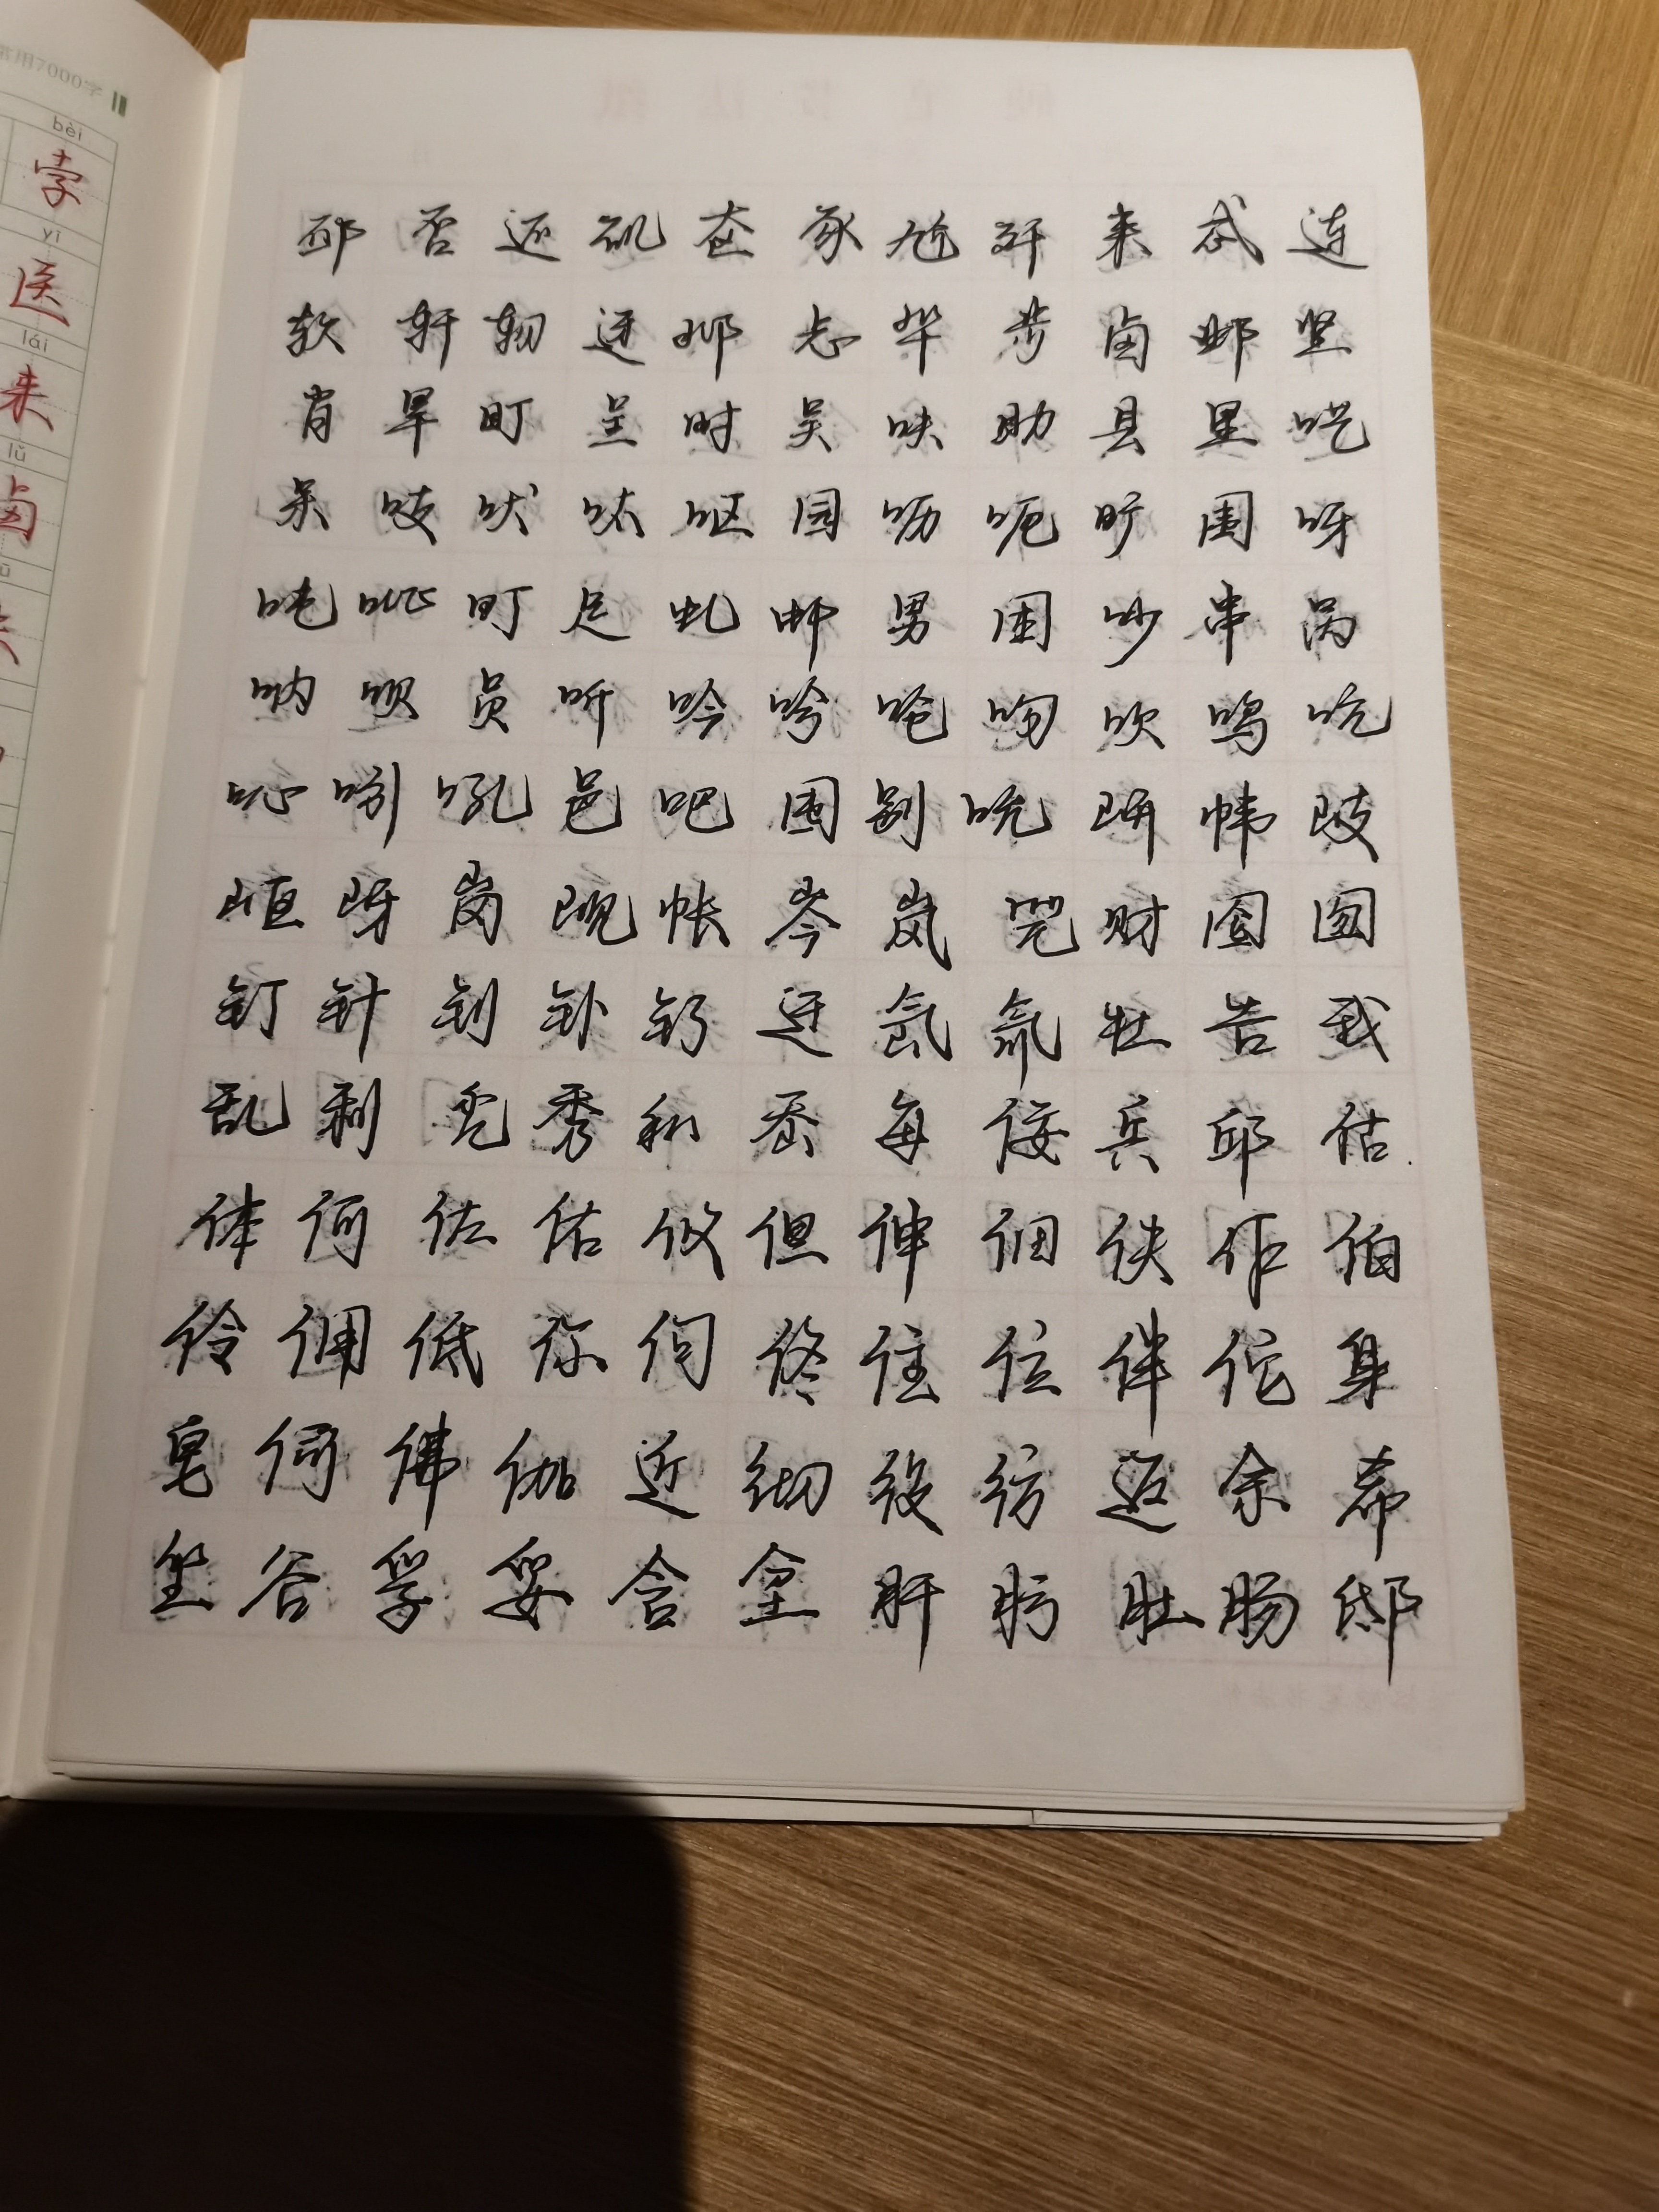 常用7000字
bèi
孛
yī
医
lái
来
lǔ
卤
邳 否 还 矶 奁 豕 尬 歼 来 忒 连
软 轩 轫 迓 邶 忐 芈 步 卤 邺 坚
肖 旱 盯 呈 时 吴 呋 助 县 里 呓
呆 吱 吠 呔 呕 园 呖 呃 旷 围 呀
吨 吡 町 足 虬 邮 男 困 吵 串 呙
呐 呗 员 听 吟 吩 呛 吻 吹 呜 吭
吣 吲 吼 邑 吧 囤 别 吮 岍 帏 岐
岖 岈 岗 岘 帐 岑 岚 兕 财 囵 囫
钉 针 钊 钋 钌 迕 氙 氚 牡 告 我
乱 利 秃 秀 私 岙 每 佞 兵 邱 估
体 何 佐 佑 攸 但 伸 佃 佚 作 伯
伶 佣 低 你 佝 佟 住 位 伴 佗 身
皂 伺 佛 伽 近 彻 役 彷 返 余 希
坐 谷 孚 妥 含 坌 肝 肟 肚 肠 邸